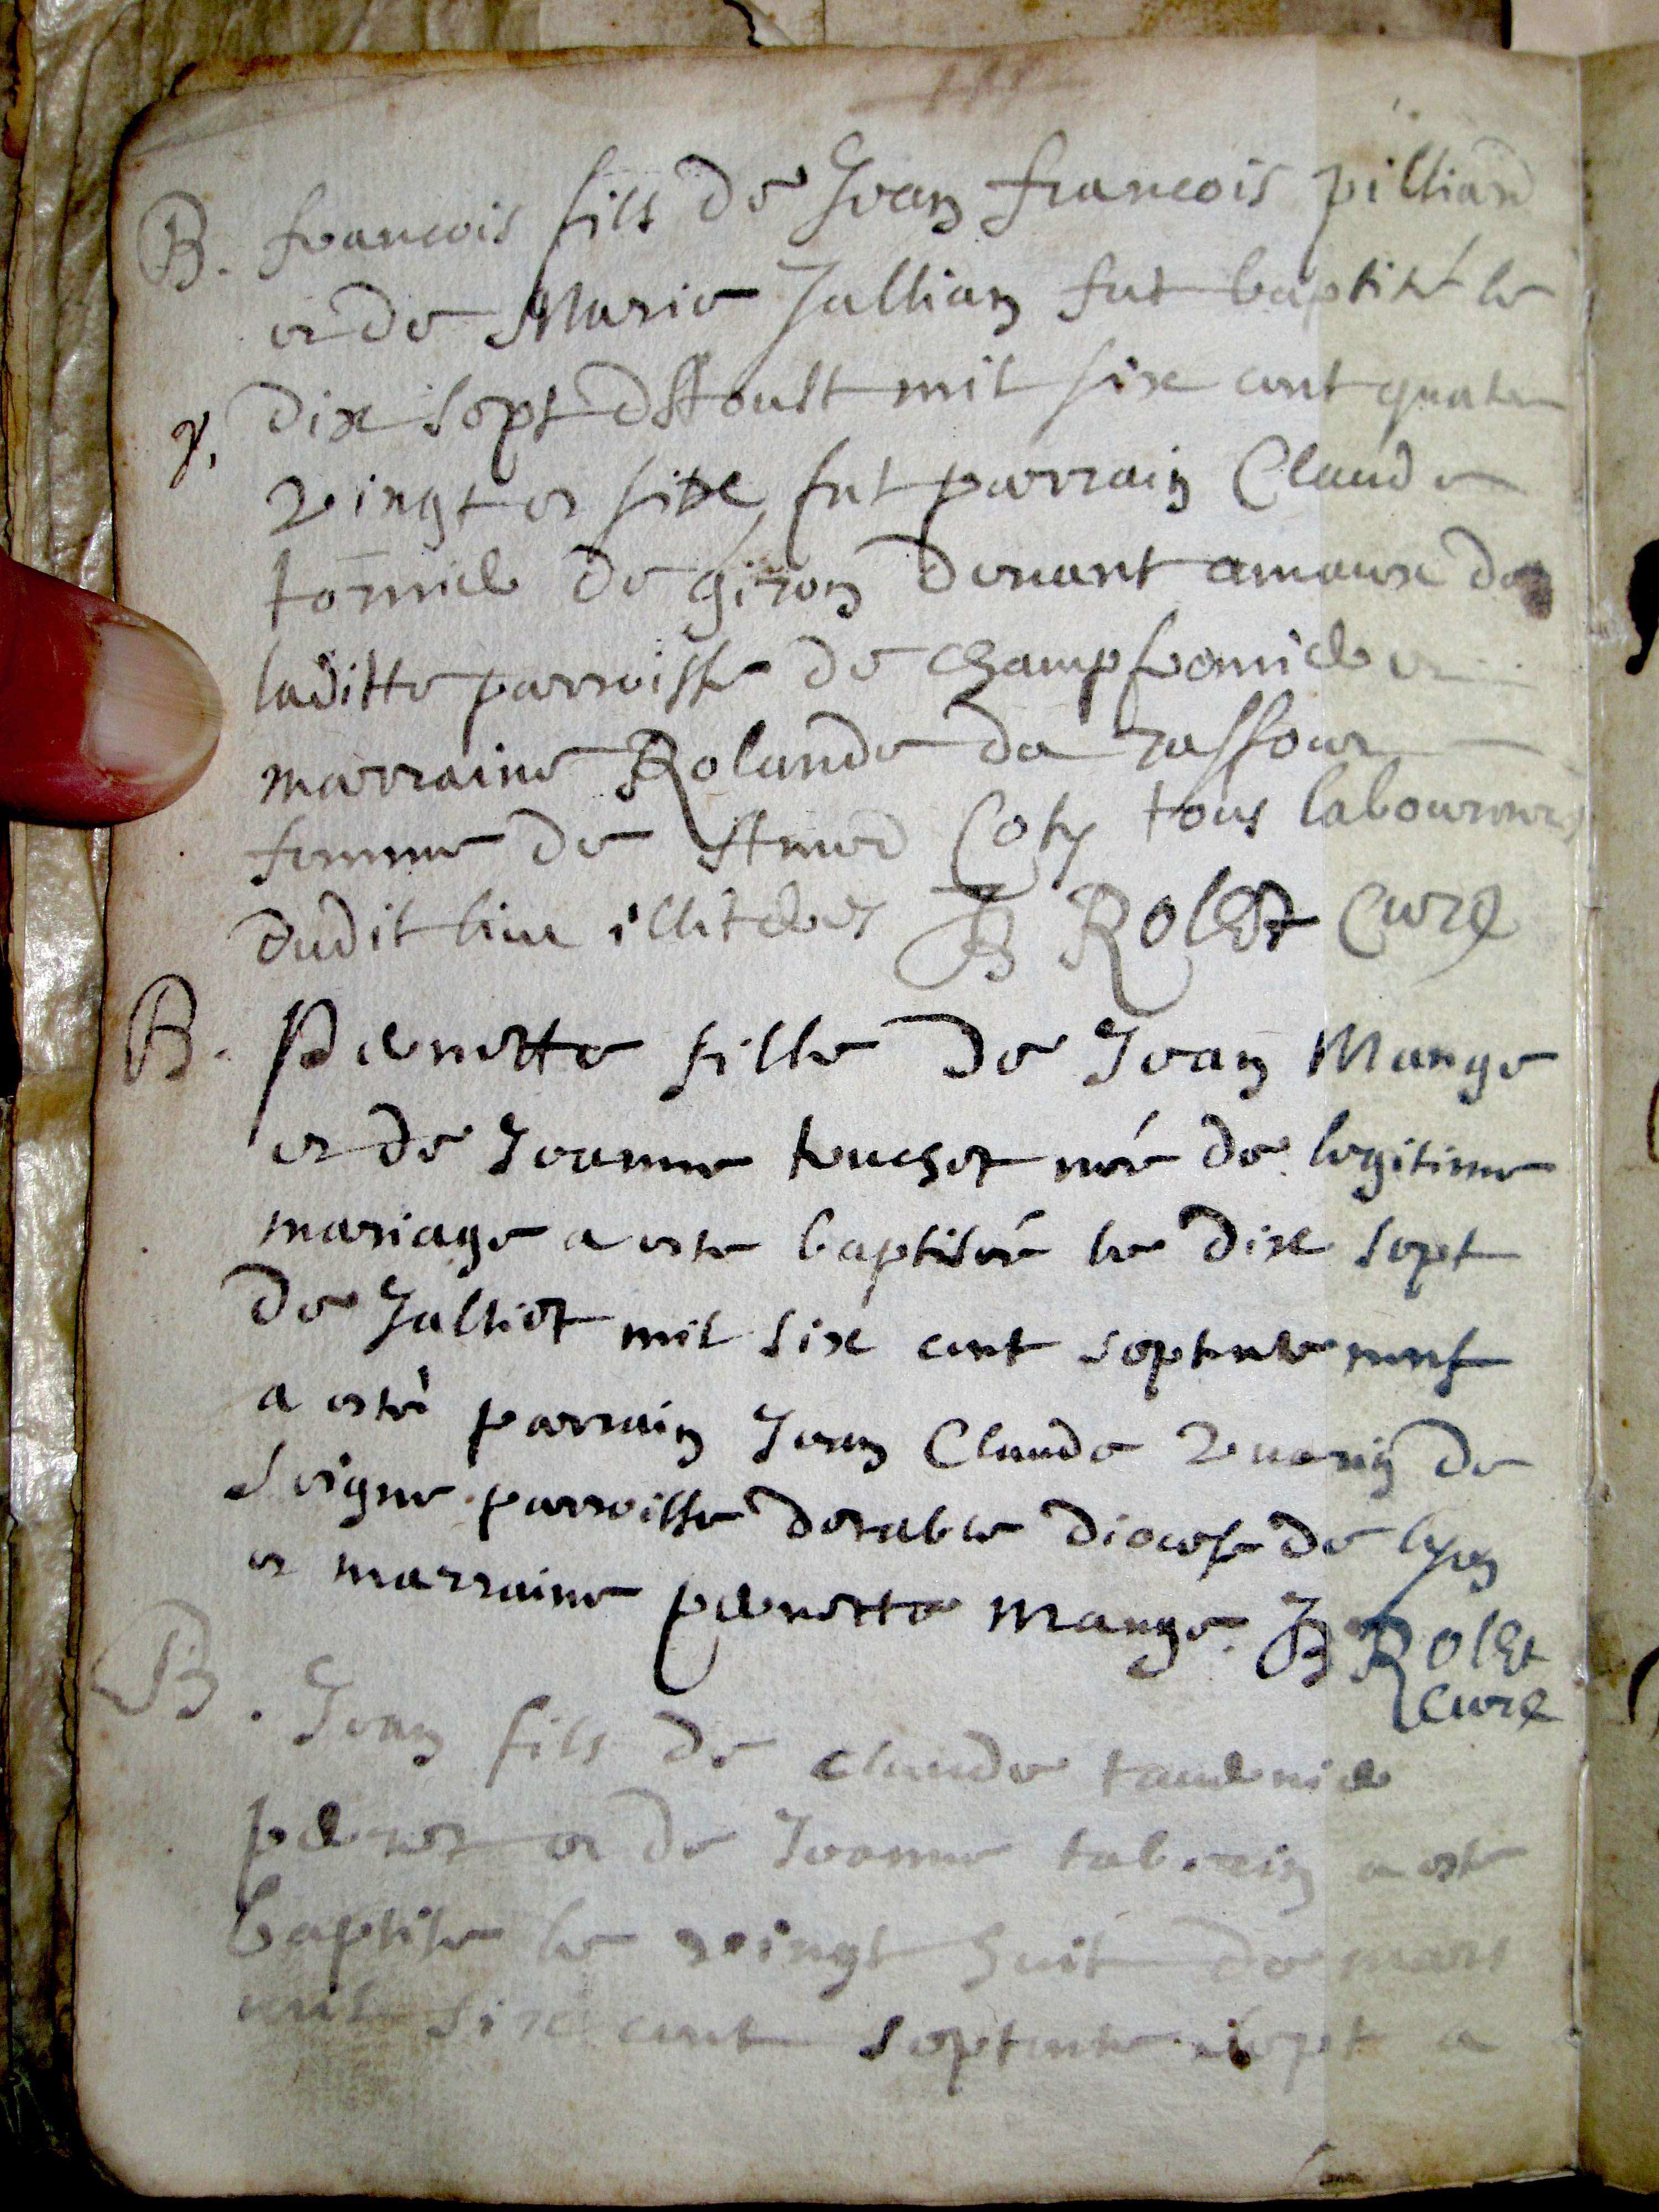 B. francois fils de Jean francois pilliard
et de Marie Jullian fut baptisé le
dix sept dAoust mil six cent quatre
vingt et six, fut parrain Claude
tornier de giron devant amoux de
laditte parroisse de champfromier et
marraine Rolande du raffour
femme de Aimé Coty tous laboureurs
dudit lieu illiterés B Rolet Curé
B. Pernette fille de Jean Mange
et de Jeanne truchet née de legitime
mariage a este baptisée le dix sept
de Julliet mil six cent septente neuf
a esté parrain Jean Claude Vuarin de
Seigne parroisse diocese de lyon
et marraine pernette Mange. B Rolet
Curé
B. Jean fils de Claude tavernier
perret et de Jeanne a este
baptise le vingt huit de mars
mil six cent septente sept a